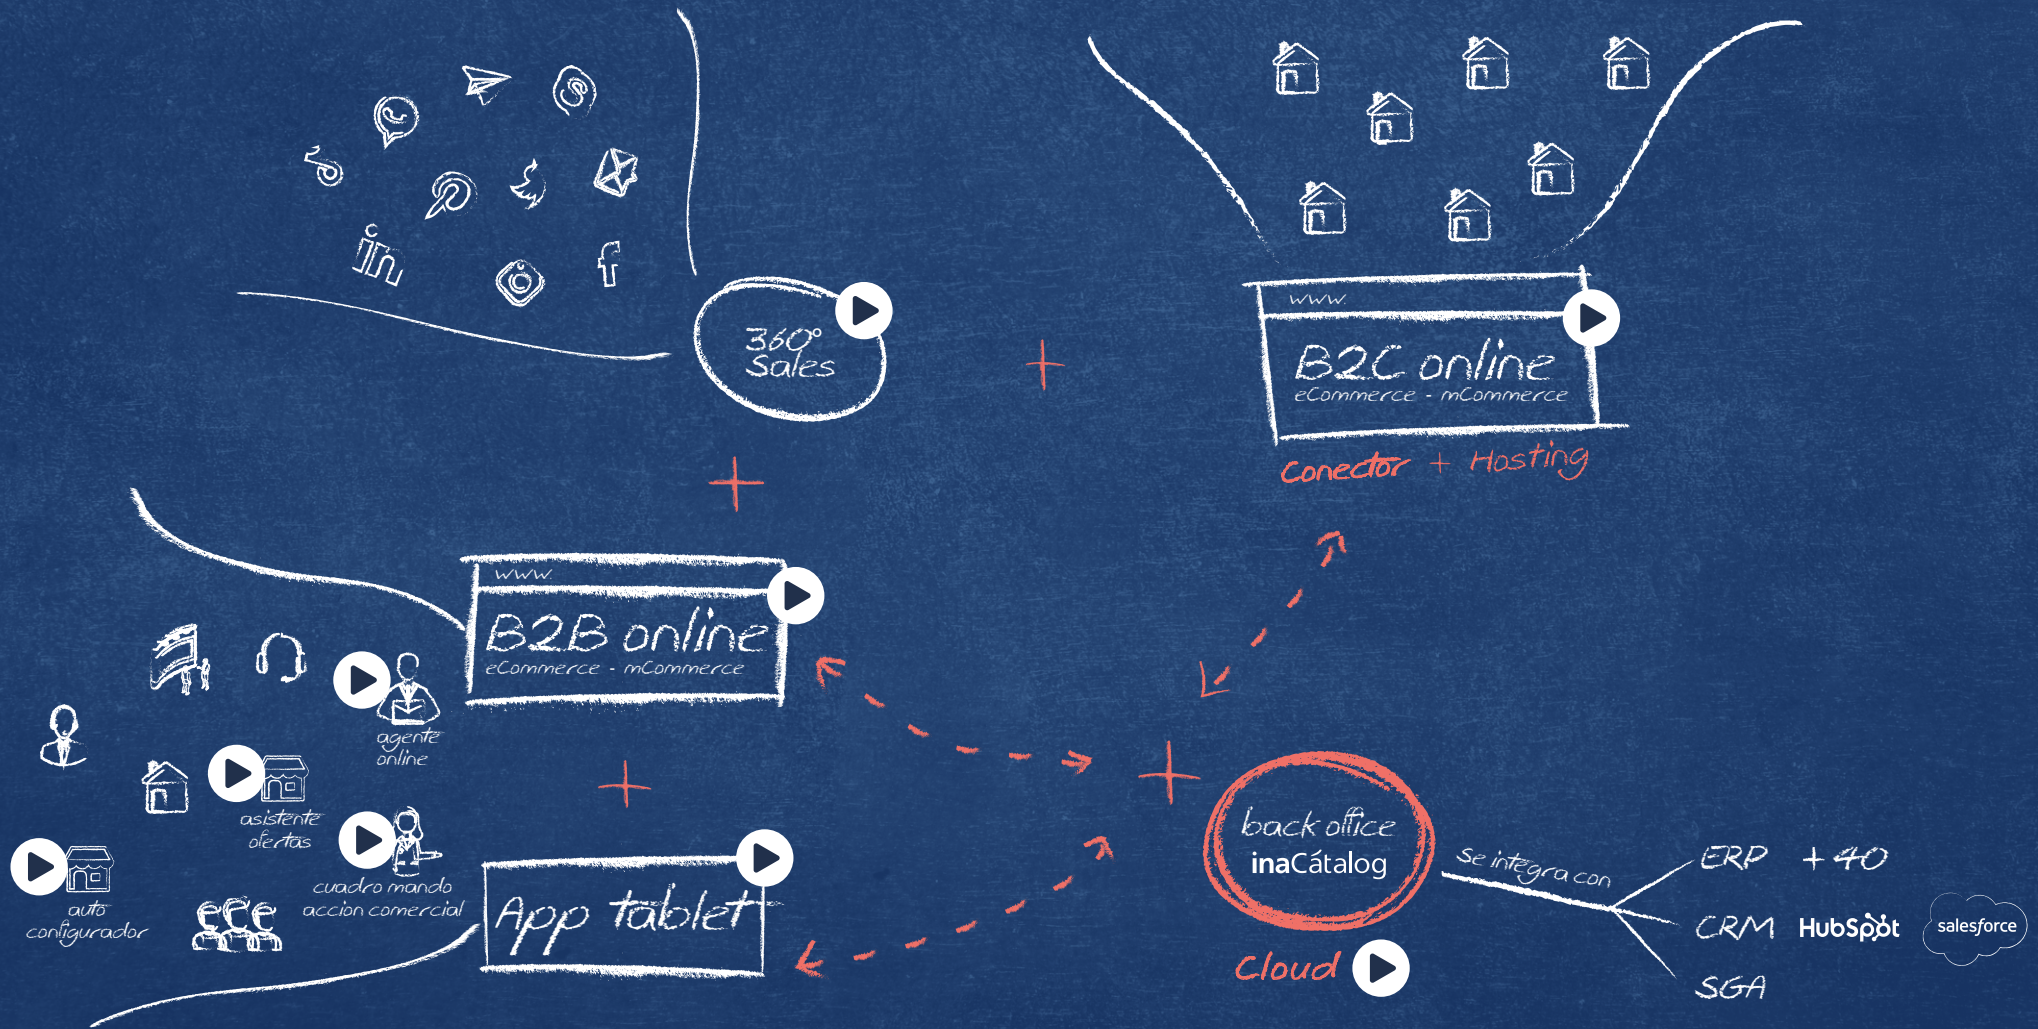 360°
Sales
www.
B2C online
eCommerce - mCommerce
Conector + Hosting
www.
B2B online
eCommerce - mCommerce
agente
online
asistente
ofertas
cuadro mando
accion comercial
auto
configurador
App tablet
back office
inaCátalog
Cloud
Se integra con
ERP + 40
CRM HubSpot salesforce
SGA